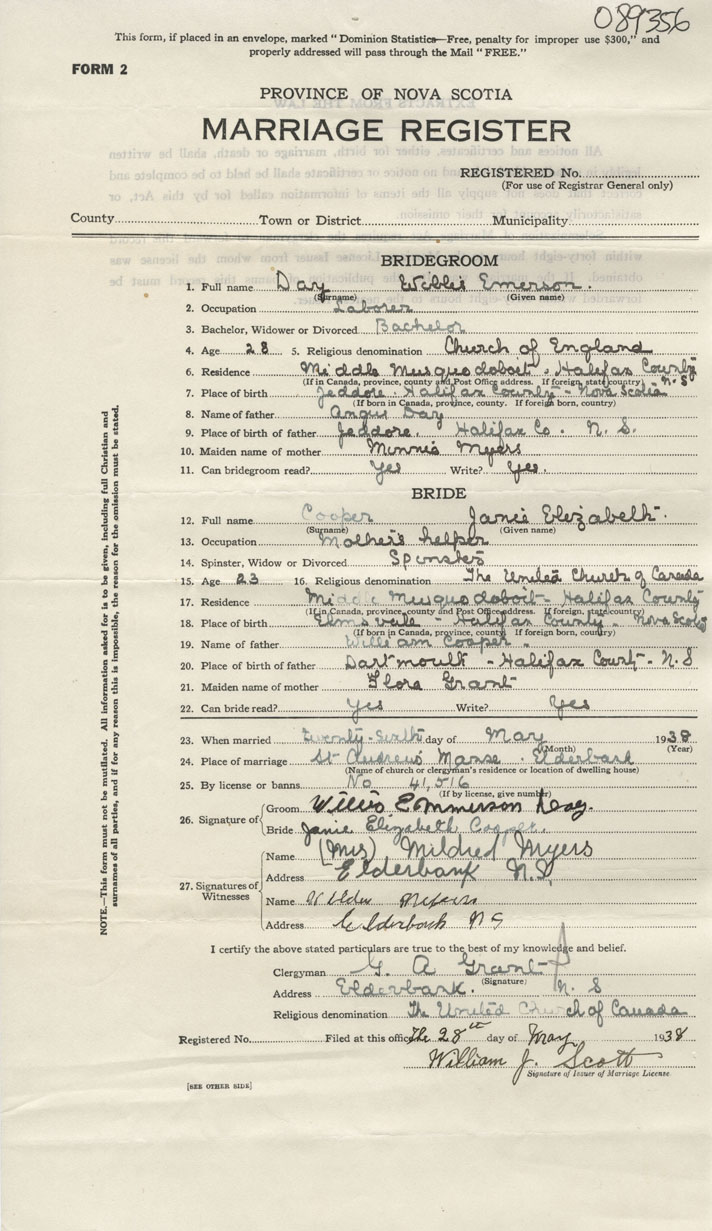 089356
This form, if placed in an envelope, marked "Dominion Statistics—Free, penalty for improper use $300," and
properly addressed will pass through the Mail "FREE."
FORM 2
PROVINCE OF NOVA SCOTIA
MARRIAGE REGISTER
REGISTERED No.
(For use of Registrar General only)
County Town or District Municipality
BRIDEGROOM
1. Full name Day Willis Emerson.
(Surname) (Given name)
2. Occupation Laborer
3. Bachelor, Widower or Divorced Bachelor
4. Age 28 5. Religious denomination Church of England
6. Residence Middle Musquodoboit. Halifax County N.S
(If in Canada, province, county and Post Office address. If foreign, state country)
7. Place of birth Jeddore. Halifax County - Nova Scotia
(If born in Canada, province, county. If foreign born, country)
8. Name of father Angus Day
9. Place of birth of father Jeddore. Halifax Co. N. S.
10. Maiden name of mother Minnie Myers
11. Can bridegroom read? Yes Write? Yes.
BRIDE
12. Full name Cooper Janie Elizabeth.
(Surname) (Given name)
13. Occupation Mother's helper
14. Spinster, Widow or Divorced Spinster
15. Age 23 16. Religious denomination The United Church of Canada
17. Residence Middle Musquodoboit - Halifax County
(If in Canada, province, county and Post Office address. If foreign, state country)
18. Place of birth Elmsvale - Halifax County - Nova Scotia
(If born in Canada, province, county. If foreign born, country)
19. Name of father William Cooper.
20. Place of birth of father Dartmouth - Halifax Count - N.S
21. Maiden name of mother Flora Grant
22. Can bride read? Yes Write? Yes
23. When married Twenty-Sixth day of May 1938
(Month) (Year)
24. Place of marriage St Andrews Manse. Elderbank
(Name of church or clergyman's residence or location of dwelling house)
25. By license or banns No 41,516
(If by license, give number)
26. Signature of
Groom Willis Emmerson Day.
Bride Janie Elizabeth Cooper.
27. Signatures of Witnesses
Name (Mrs) Mildred Myers
Address Elderbank N.S.
Name Myers
Address Elderbank NS
I certify the above stated particulars are true to the best of my knowledge and belief.
Clergyman G. A Grant
(Signature)
Address Elderbank. N. S
Religious denomination The United Church of Canada
Registered No. Filed at this office The 28th day of May 1938
William J. Scott
Signature of Issuer of Marriage License
[SEE OTHER SIDE]
NOTE.—This form must not be mutilated. All information asked for is to be given, including full Christian and
surnames of all parties, and if for any reason this is impossible, the reason for the omission must be stated.